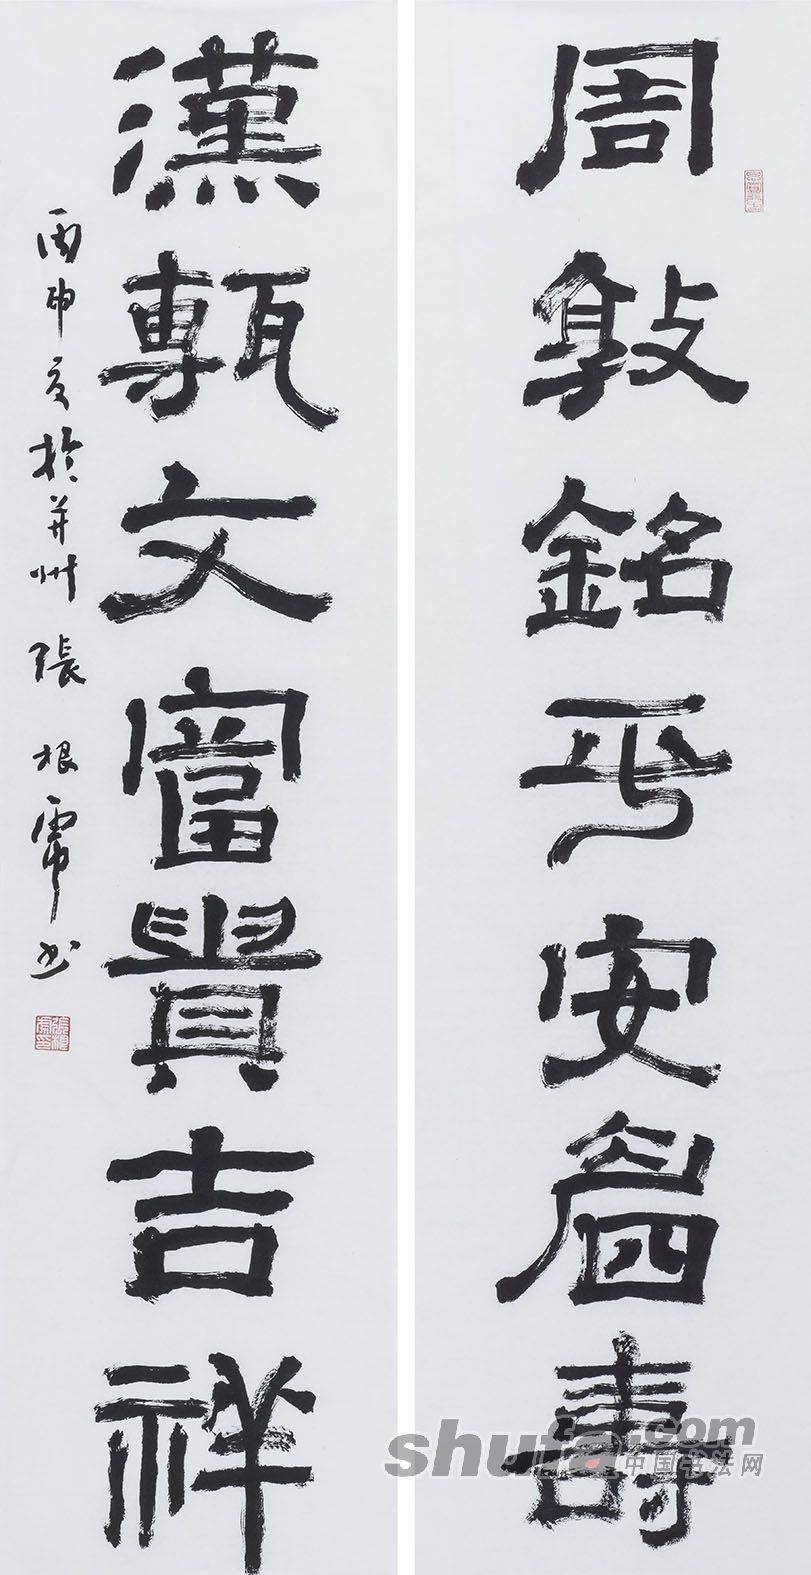 周敦銘平安眉壽
漢甎文富貴吉祥
丙申夏於并州張根虎书
張根虎印
shufa.com
中国书法网